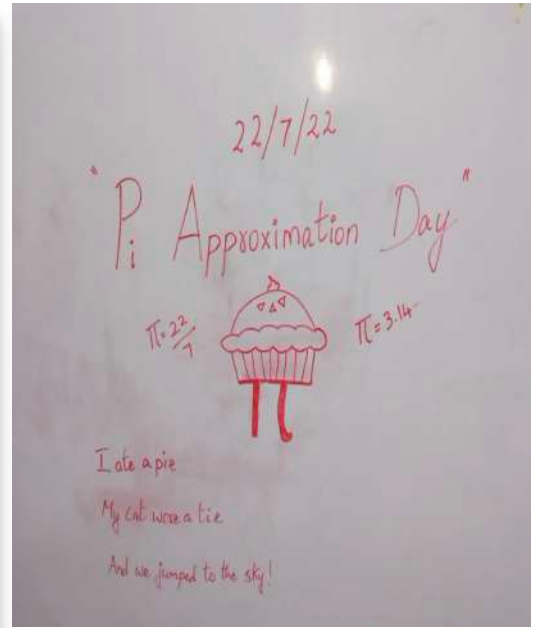 22/7/22
"Pi Approximation Day"
π = 22/7
π = 3.14
I ate a pie
My cat wore a tie
And we jumped to the sky!